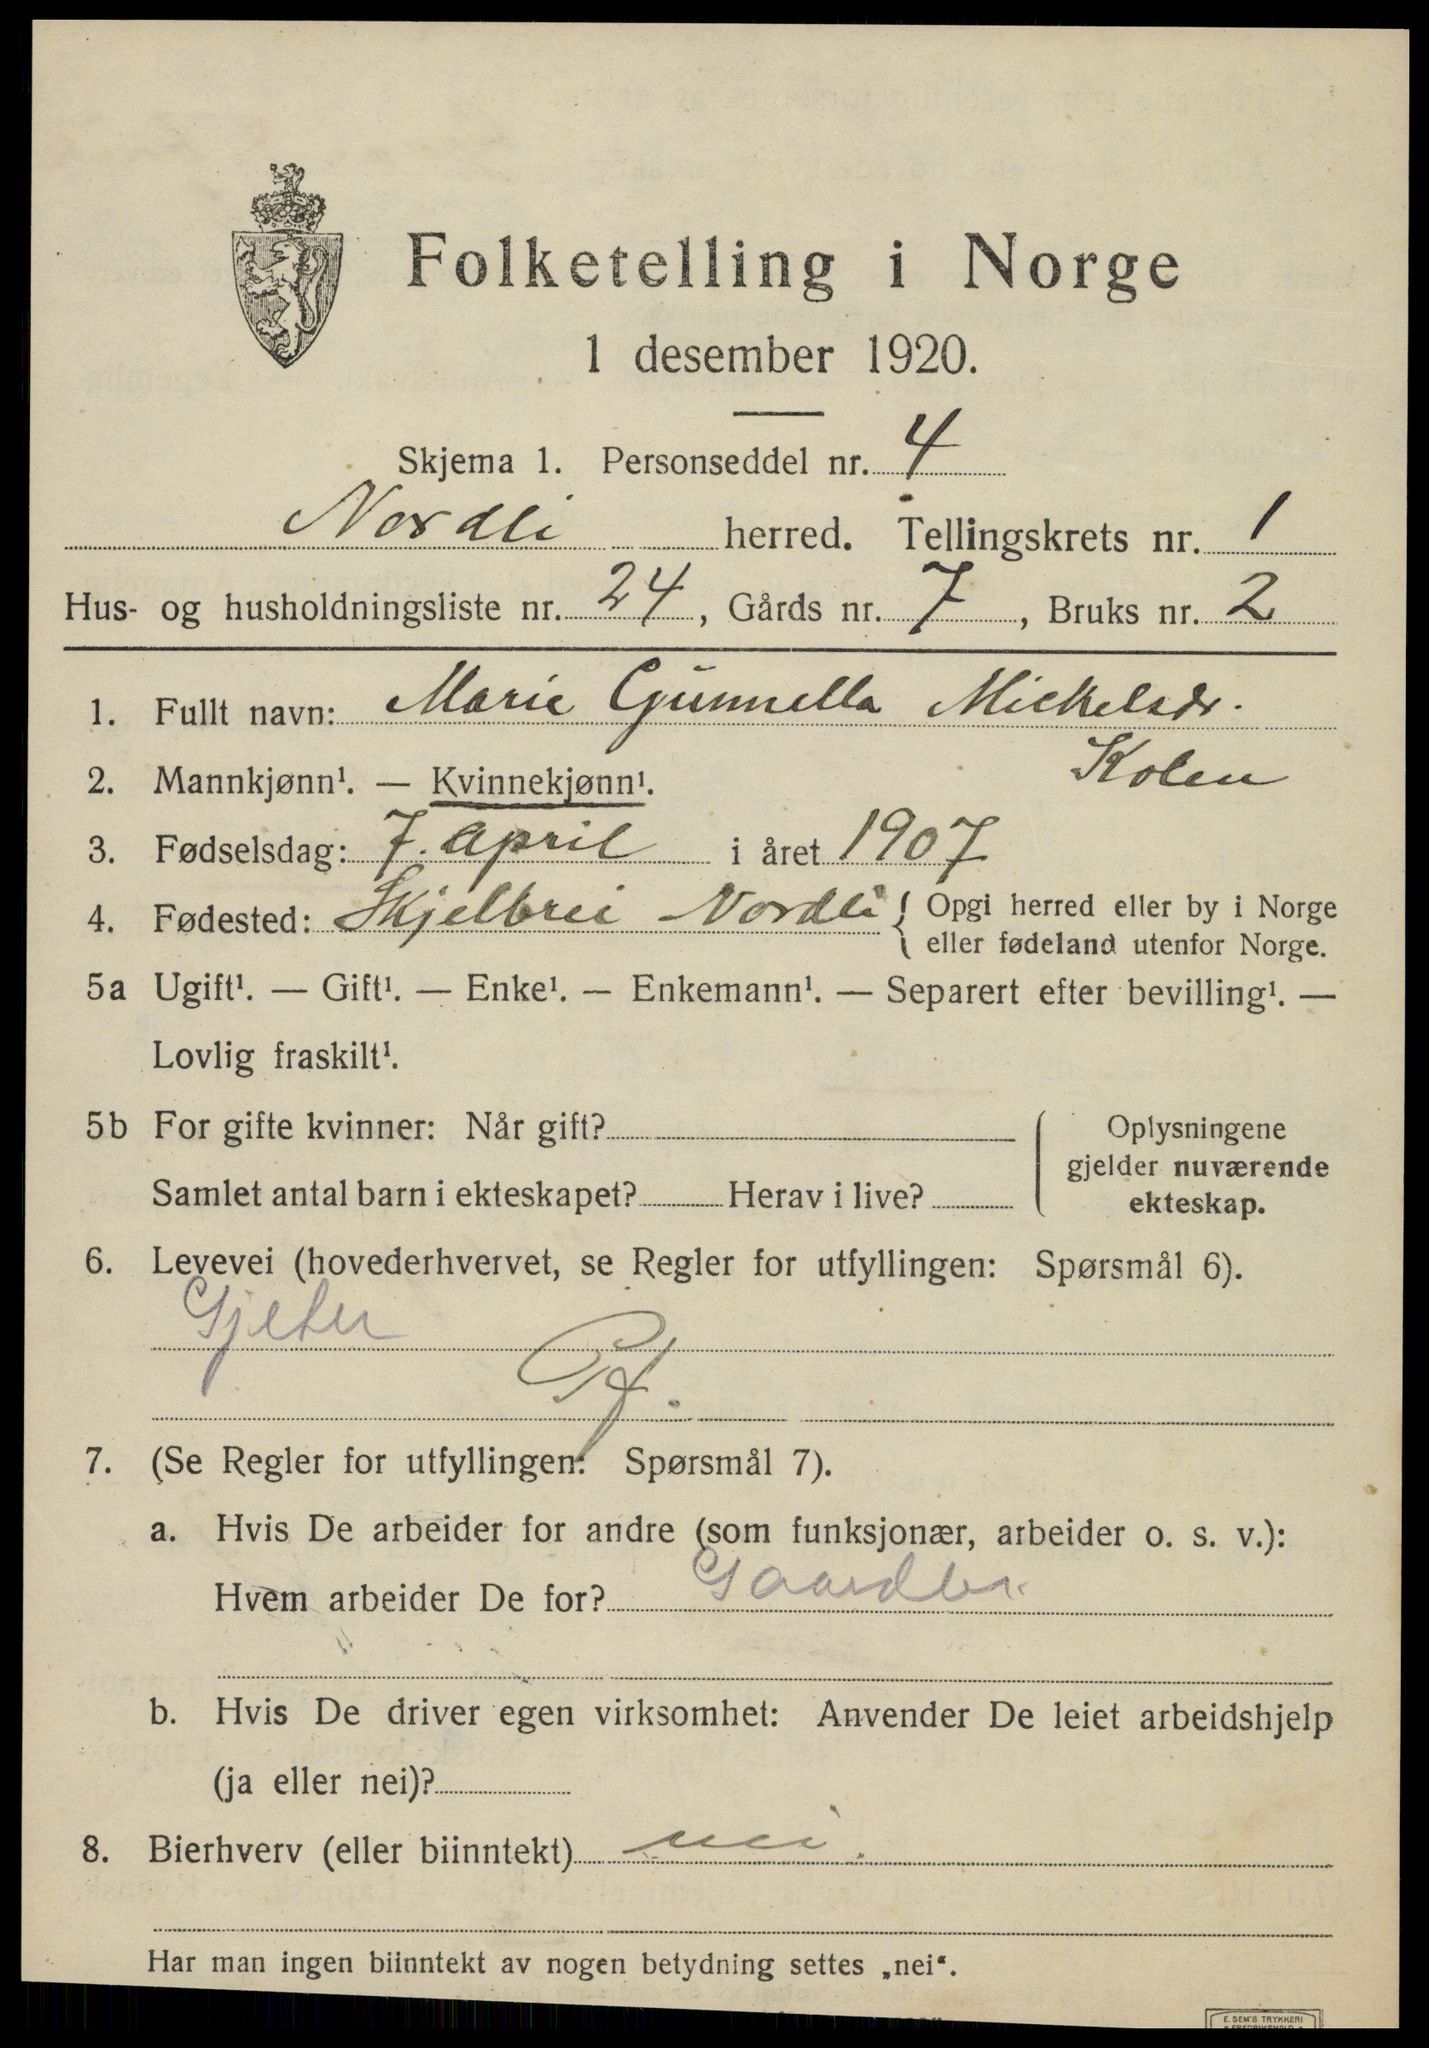 Folketelling i Norge
1 desember 1920.
Skjema 1. Personseddel nr. 4
Nordli herred. Tellingskrets nr. 1
Hus- og husholdningsliste nr. 24, Gårds nr. 7, Bruks nr. 2
1. Fullt navn: Marie Gunnella Mickelsdr.
Kolen
2. Mannkjønn¹. — Kvinnekjønn¹.
3. Fødselsdag: 7. april i året 1907
4. Fødested: Skjelbrei Nordli { Opgi herred eller by i Norge
eller fødeland utenfor Norge.
5a Ugift¹. — Gift¹. — Enke¹. — Enkemann¹. — Separert efter bevilling¹. —
Lovlig fraskilt¹.
5b For gifte kvinner: Når gift?
Samlet antal barn i ekteskapet? Herav i live?
Oplysningene
gjelder nuværende
ekteskap.
6. Levevei (hovederhvervet, se Regler for utfyllingen: Spørsmål 6).
Gjeter
7. (Se Regler for utfyllingen: Spørsmål 7).
a. Hvis De arbeider for andre (som funksjonær, arbeider o. s. v.):
Hvem arbeider De for? Gaardbr.
b. Hvis De driver egen virksomhet: Anvender De leiet arbeidshjelp
(ja eller nei)?
8. Bierhverv (eller biinntekt) nei.
Har man ingen biinntekt av nogen betydning settes „nei“.
E. SEM'S TRYKKERI
FREDRIKSHALD